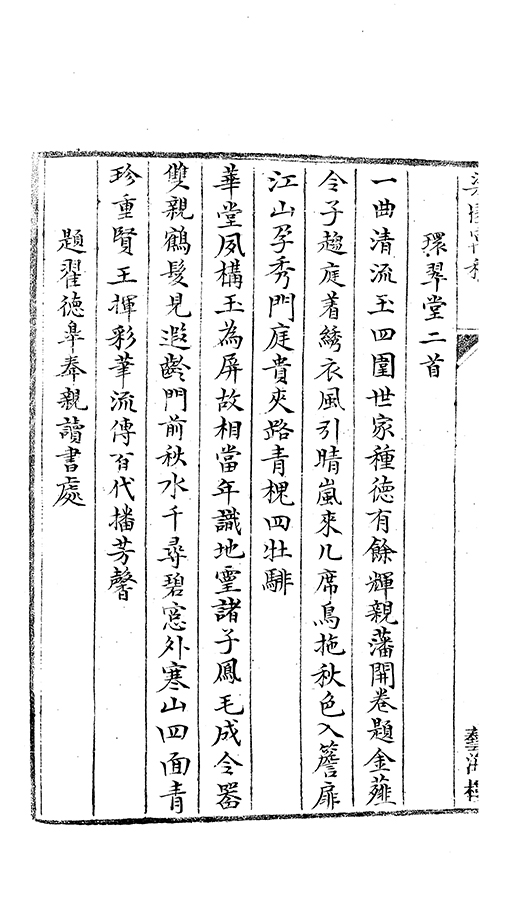 環翠堂二首
一曲清流玉四圍世家種徳有餘輝親藩開卷題金薤
令子趨庭着綉衣風引晴嵐來几席鳥拖秋色入簷扉
江山孕秀門庭貴夾路青槐四牡騑
華堂夙構玉為屏故相當年識地靈諸子鳳毛成令器
雙親鶴髮見遐齡門前秋水千尋碧窓外寒山四面青
珍重賢王揮彩筆流傳百代播芳馨
題翟徳皋奉親讀書處
藝海樓